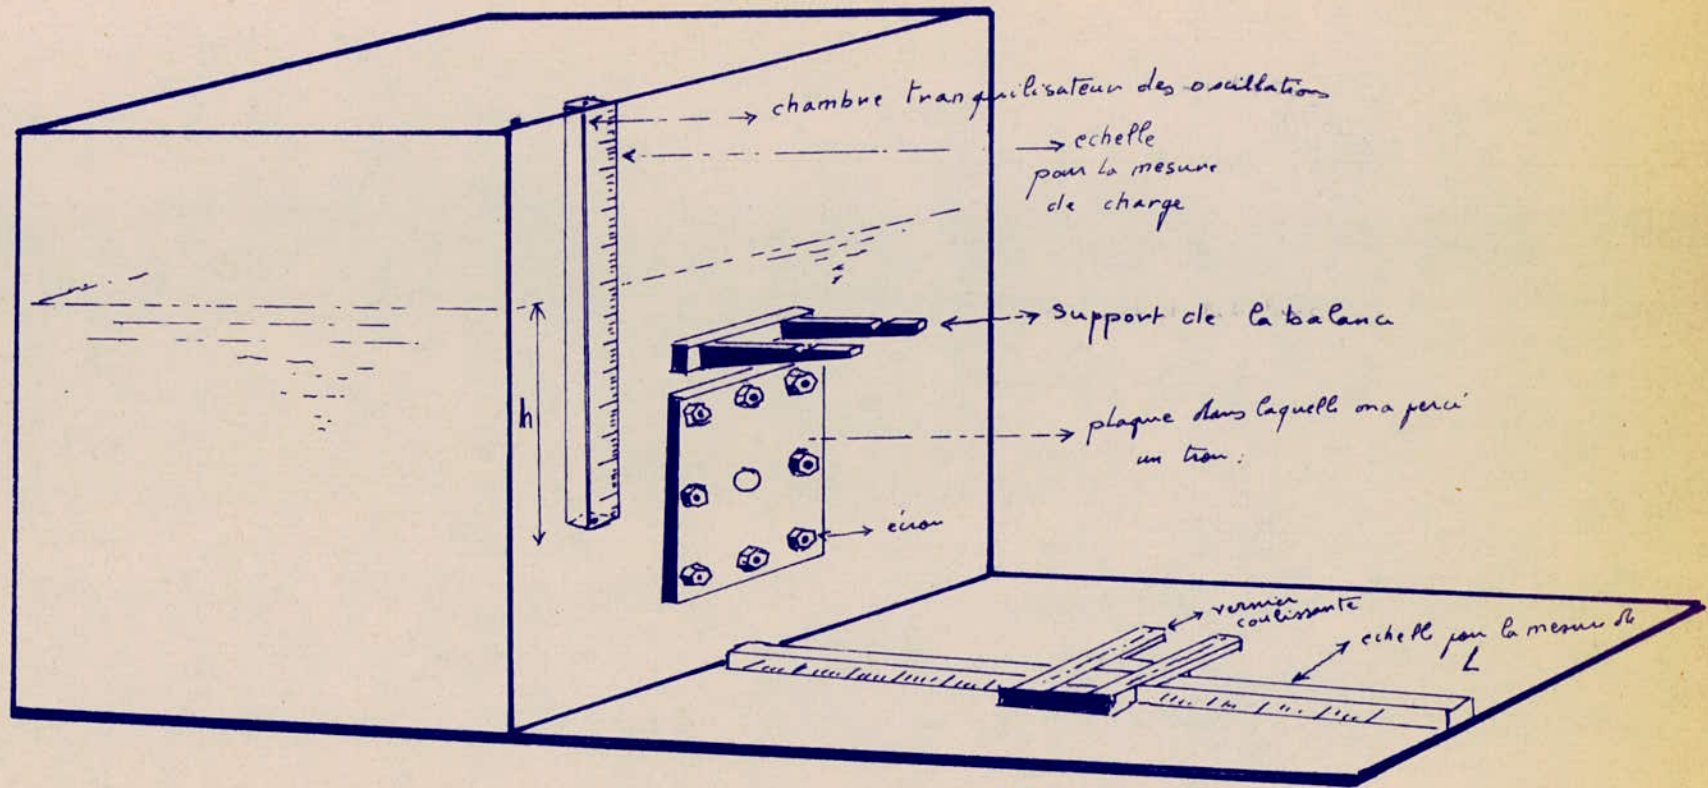 chambre tranquilisateur des oscillations
echelle
pour la mesure
de charge
support de la balance
h
plaque dans laquelle on a percé
un trou :
écrou
vernier
coulissante
echelle pour la mesure de
L